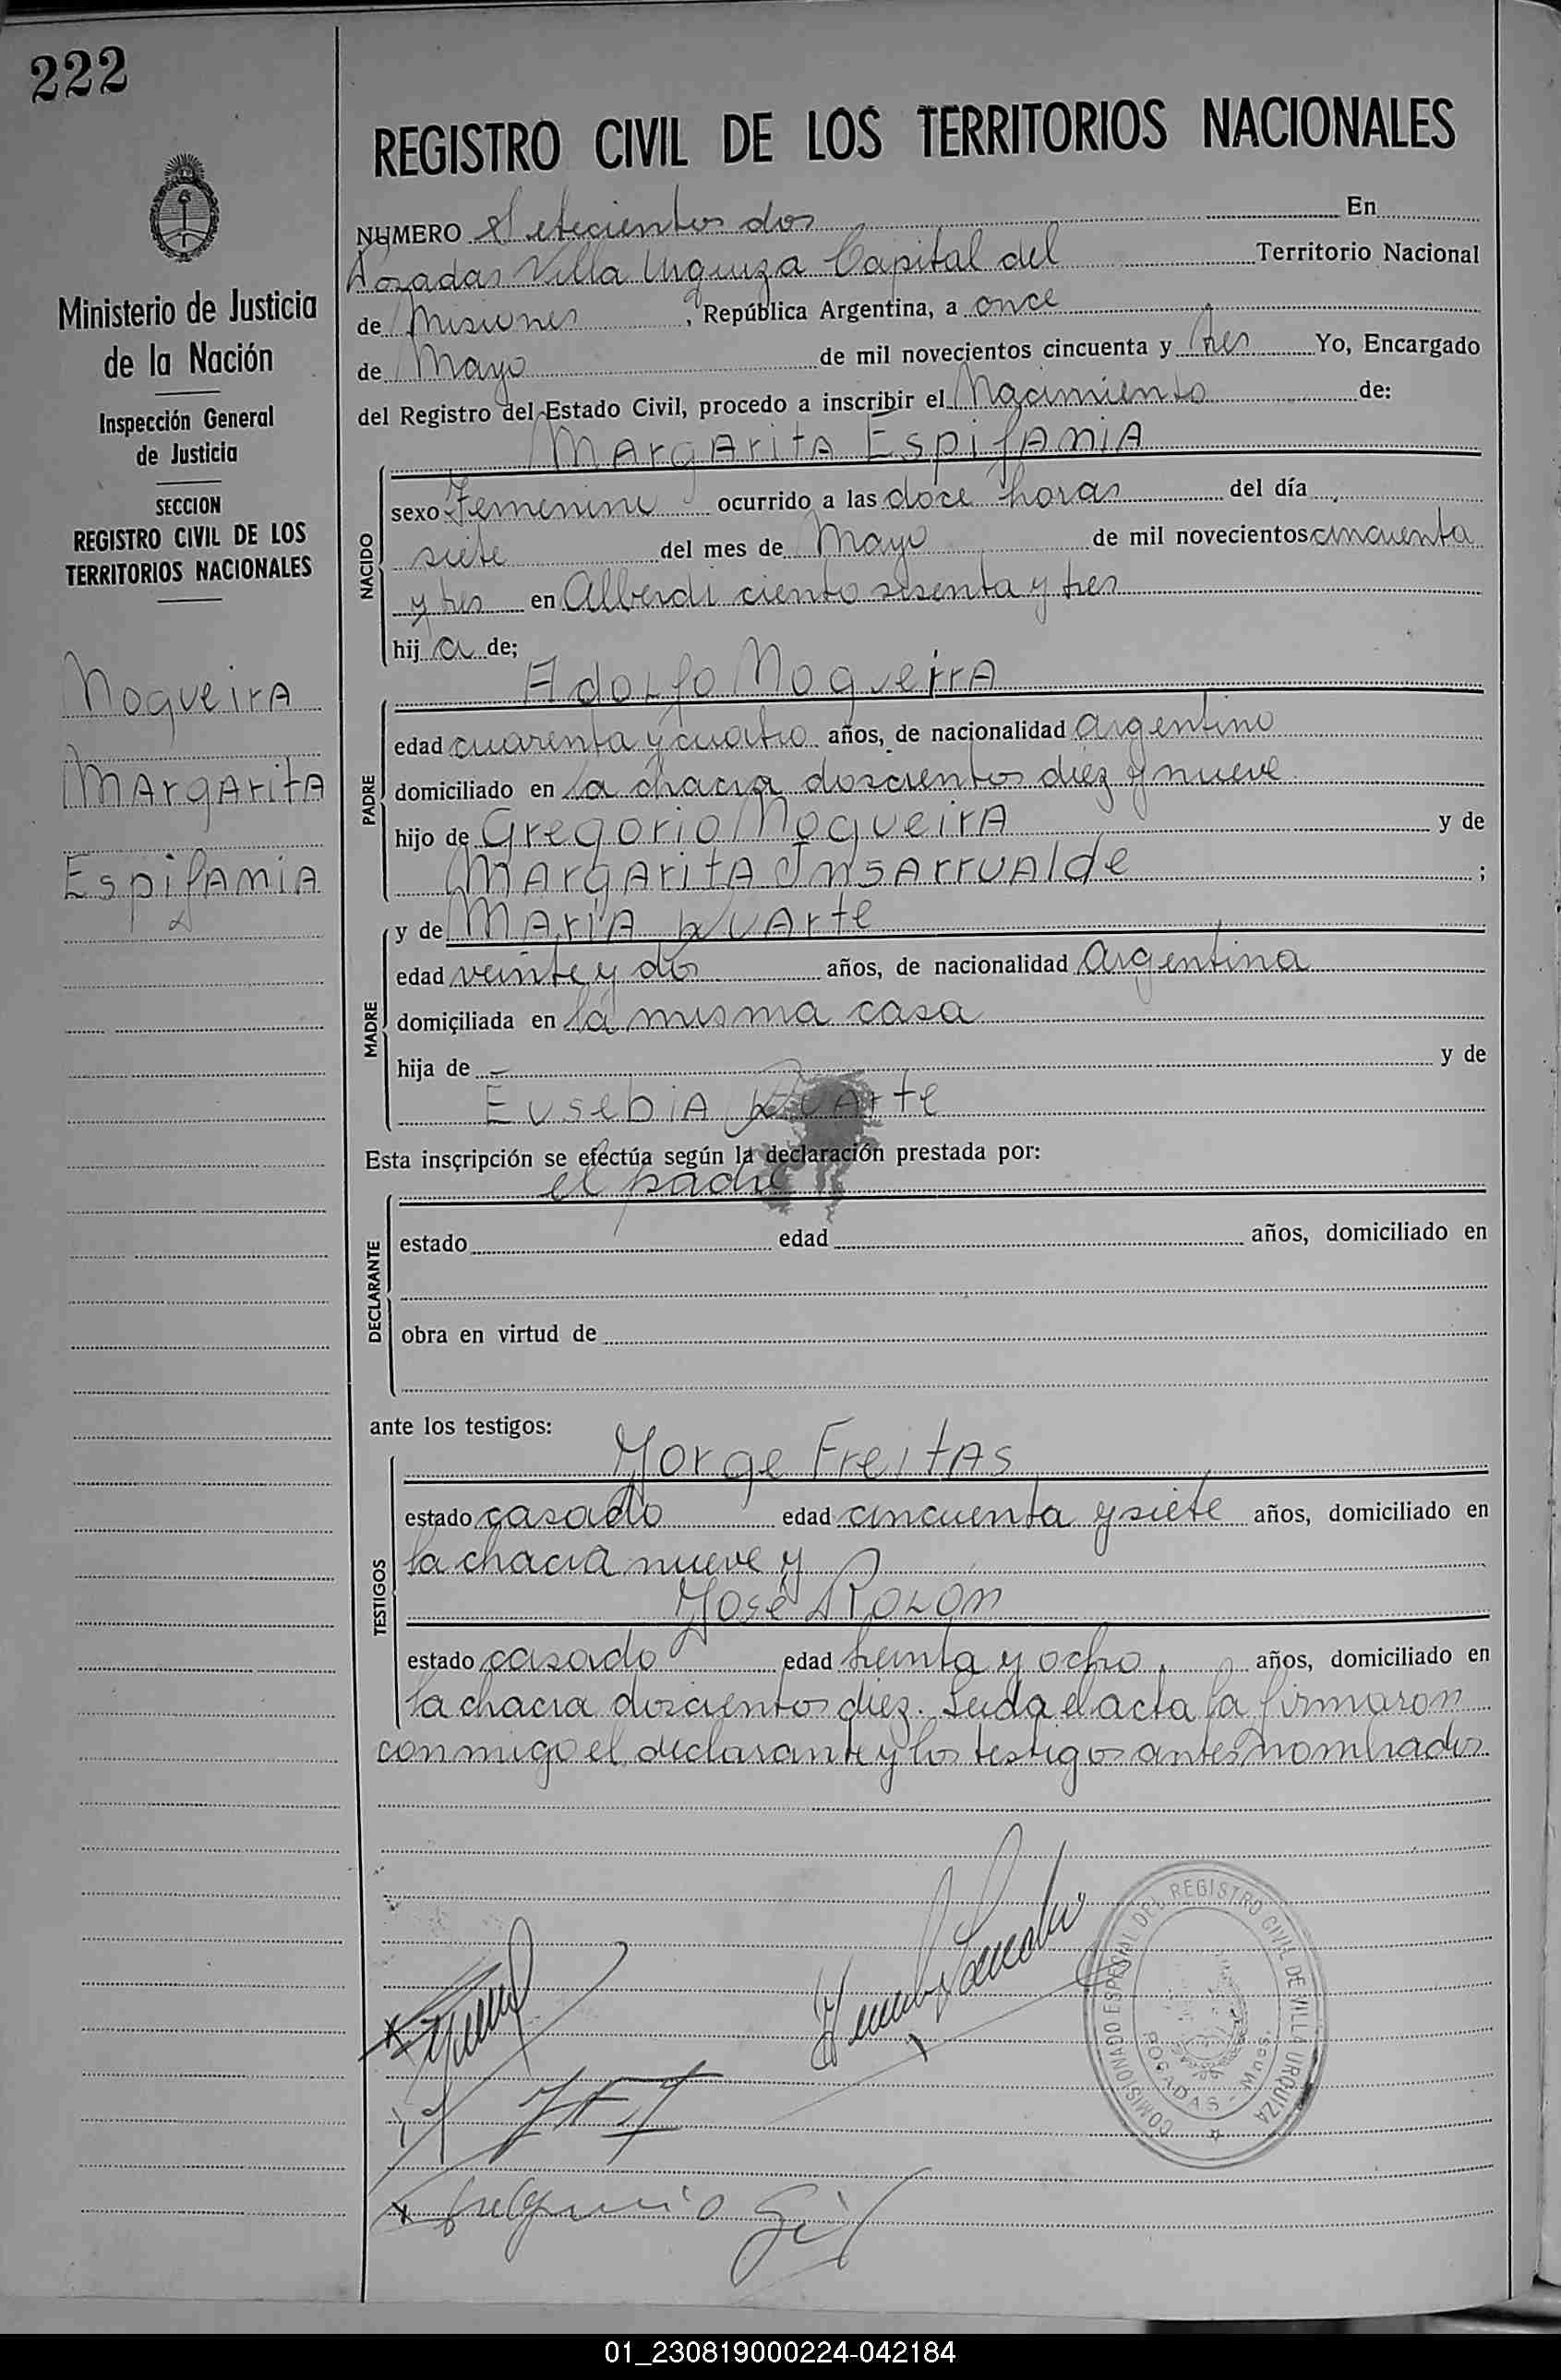 222
Ministerio de Justicia
de la Nación
Inspección General
de Justicia
SECCION
REGISTRO CIVIL DE LOS
TERRITORIOS NACIONALES
Nogueira
Margarita
Espifania
REGISTRO CIVIL DE LOS TERRITORIOS NACIONALES
NUMERO Setecientos dos En
Posadas Villa Urquiza Capital del Territorio Nacional
de Misiones, República Argentina, a once
de Mayo de mil novecientos cincuenta y tres Yo, Encargado
del Registro del Estado Civil, procedo a inscribir el Nacimiento de:
Margarita Espifania
NACIDO
sexo Femenino ocurrido a las doce horas del día
siete del mes de Mayo de mil novecientos cincuenta
y tres en Alberdi ciento sesenta y tres
hija de;
Adolfo Nogueira
PADRE
edad cuarenta y cuatro años, de nacionalidad argentino
domiciliado en la chacra doscientos diez y nueve
hijo de Gregorio Nogueira y de
Margarita Insarrualde ;
y de Maria Duarte
MADRE
edad veinte y dos años, de nacionalidad argentina
domiciliada en la misma casa
hija de y de
Eusebia Duarte
Esta inscripción se efectúa según la declaración prestada por:
el padre
DECLARANTE
estado edad años, domiciliado en
obra en virtud de
ante los testigos:
Jorge Freitas
TESTIGOS
estado casado edad cincuenta y siete años, domiciliado en
la chacra nueve y
José Rolon
estado casado edad treinta y ocho años, domiciliado en
la chacra doscientos diez. Leida el acta la firmaron
conmigo el declarante y los testigos antes nombrados
COMISIONADO ESPECIAL DEL REGISTRO CIVIL DE VILLA URQUIZA
POSADAS - Mnes.
Gil
01_230819000224-042184